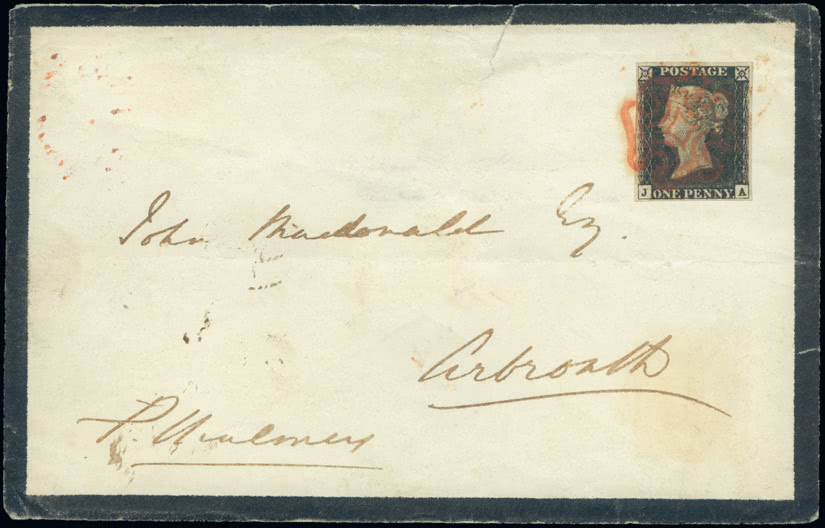 POSTAGE
J ONE PENNY A
John Macdonald Esq.
Arbroath
P. Chalmers